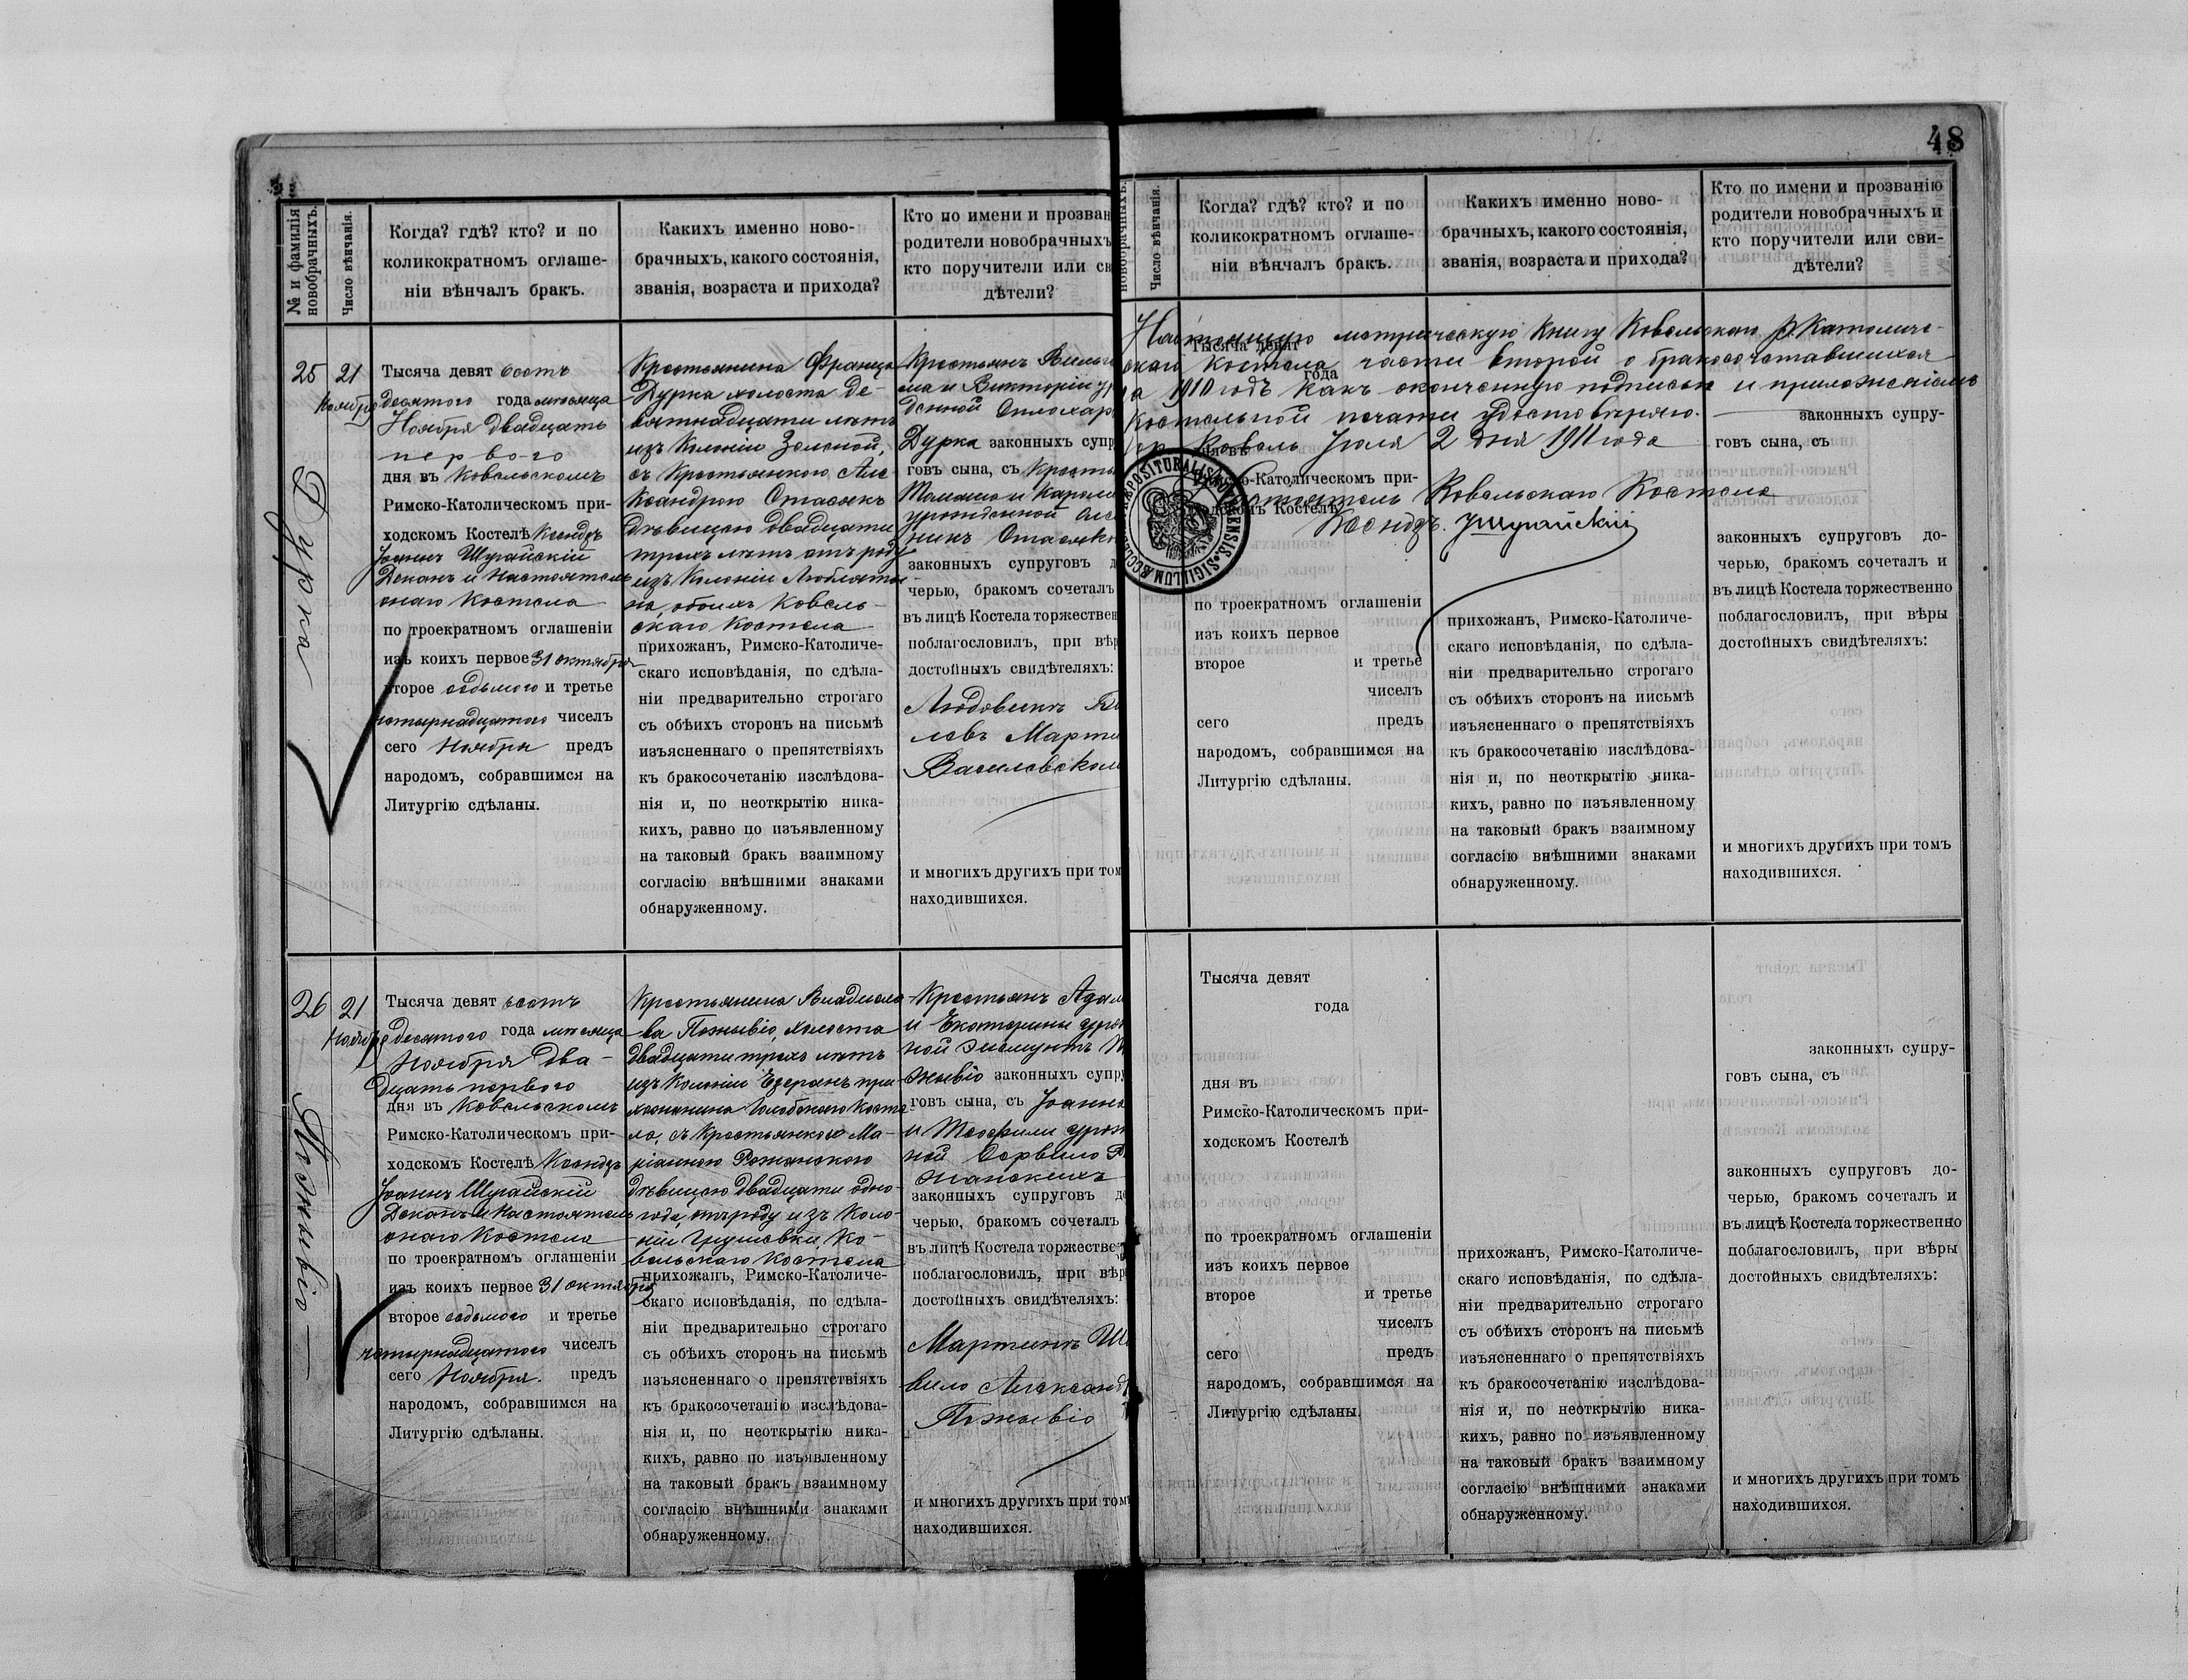 № и фамилія новобрачныхъ.
Число вѣнчанія.
Когда? гдѣ? кто? и по
коликократномъ оглаше-
ніи вѣнчалъ бракъ.
Какихъ именно ново-
брачныхъ, какого состоянія,
званія, возраста и прихода?
Кто по имени и прозван
родители новобрачныхъ
кто поручители или св
дѣтели?
25
21
Ноября
Дурка
Тысяча девят сотъ
десятого года мѣсяца
Ноября двадцать
первого
дня въ Ковельскомъ
Римско-Католическомъ при-
ходскомъ Костелѣ Ксендзъ
Іоаннъ Шурайскій
Деканъ и Настоятель
онаго Костела
по троекратномъ оглашеніи
изъ коихъ первое 31 октября
второе седьмого и третье
четырнадцатого чиселъ
сего Ноября предъ
народомъ, собравшимся на
Литургію сдѣланы.
Крестьянина Франца
Дурка холоста де-
вятнадцати лѣтъ
изъ Колоніи Зеленой,
съ Крестьянкою Але
ксандрою Стасякъ
дѣвицею двадцати
трехъ лѣтъ отъ роду
изъ Колоніи
на, обоихъ Ковель-
скаго Костела
прихожанъ, Римско-Католиче-
скаго исповѣданія, по сдѣла-
ніи предварительно строгаго
съ обѣихъ сторонъ на письмѣ
изъясненнаго о препятствіяхъ
къ бракосочетанію изслѣдова-
нія и, по неоткрытію ника-
кихъ, равно по изъявленному
на таковый бракъ взаимному
согласію внѣшними знаками
обнаруженному.
Крестьянъ Вильге
ма и Викторіи ур
денной
Дурка законныхъ супр
говъ сына, съ Кресть
Томаша и Кароли
урожденной
Стасяк
законныхъ супруговъ д
черью, бракомъ сочеталъ
въ лицѣ Костела торжествен
поблагословилъ, при вѣр
достойныхъ свидѣтеляхъ:
Людовикъ
Марти
и многихъ другихъ при том
находившихся.
26
21
Ноября
Пожывіо
Тысяча девят сотъ
десятого года мѣсяца
Ноября два-
дцать первого
дня въ Ковельскомъ
Римско-Католическомъ при-
ходскомъ Костелѣ Ксендзъ
Іоаннъ Шурайскій
Деканъ и Настоятель
онаго Костела
по троекратномъ оглашеніи
изъ коихъ первое 31 октября
второе седьмого и третье
четырнадцатого чиселъ
сего Ноября. предъ
народомъ, собравшимся на
Литургію сдѣланы.
Крестьянина Владисла
ва Пожывіо, холоста
двадцати трехъ лѣтъ
изъ Колоніи Езеранъ при-
хожанина Голобскаго Косте
ла, съ Крестьянкою Ма-
ріанною Рожанскою
дѣвицею двадцати одно-
года, отъ роду изъ Коло-
ніи Грушовки, Ко-
вельскаго Костела
прихожанъ, Римско-Католиче-
скаго исповѣданія, по сдѣла-
ніи предварительно строгаго
съ обѣихъ сторонъ на письмѣ
изъясненнаго о препятствіяхъ
къ бракосочетанію изслѣдова-
нія и, по неоткрытію ника-
кихъ, равно по изъявленному
на таковый бракъ взаимному
согласію внѣшними знаками
обнаруженному.
Крестьянъ Адам
и Екатерины урож
ной
жывіо законныхъ супру
говъ сына, съ Іоанна
и Теофили урож
ной
жанскихъ
законныхъ супруговъ до
черью, бракомъ сочеталъ
въ лицѣ Костела торжестве
поблагословилъ, при вѣр
достойныхъ свидѣтеляхъ:
Мартинъ
Александ
Пожывіо
и многихъ другихъ при том
находившихся.
48
новобрачныхъ.
Число вѣнчанія.
Когда? гдѣ? кто? и по
коликократномъ оглаше-
ніи вѣнчалъ бракъ.
Какихъ именно ново-
брачныхъ, какого состоянія,
званія, возраста и прихода?
Кто по имени и прозванію
родители новобрачныхъ и
кто поручители или сви-
дѣтели?
Настоящую метрическую книгу Ковельскаго Р. Католиче-
скаго Костела части второй о бракосочетавшихся
за 1910 годъ какъ оконченную подписью и приложеніемъ
костельной печати удостовѣряю.
гор. Ковель Іюля 2 дня 1911 года
Настоятель Ковельскаго Костела
Ксендзъ. Ішурайскій
SIGILLUM
Тысяча девят
года
дня въ
Римско-Католическомъ при-
ходскомъ Костелѣ
по троекратномъ оглашеніи
изъ коихъ первое
второе и третье
чиселъ
сего предъ
народомъ, собравшимся на
Литургію сдѣланы.
прихожанъ, Римско-Католиче-
скаго исповѣданія, по сдѣла-
ніи предварительно строгаго
съ обѣихъ сторонъ на письмѣ
изъясненнаго о препятствіяхъ
къ бракосочетанію изслѣдова-
нія и, по неоткрытію ника-
кихъ, равно по изъявленному
на таковый бракъ взаимному
согласію внѣшними знаками
обнаруженному.
законныхъ супру-
говъ сына, съ
законныхъ супруговъ до-
черью, бракомъ сочеталъ и
въ лицѣ Костела торжественно
поблагословилъ, при вѣры
достойныхъ свидѣтеляхъ:
и многихъ другихъ при томъ
находившихся.
Тысяча девят
года
дня въ
Римско-Католическомъ при-
ходскомъ Костелѣ
по троекратномъ оглашеніи
изъ коихъ первое
второе и третье
чиселъ
сего предъ
народомъ, собравшимся на
Литургію сдѣланы.
прихожанъ, Римско-Католиче-
скаго исповѣданія, по сдѣла-
ніи предварительно строгаго
съ обѣихъ сторонъ на письмѣ
изъясненнаго о препятствіяхъ
къ бракосочетанію изслѣдова-
нія и, по неоткрытію ника-
кихъ, равно по изъявленному
на таковый бракъ взаимному
согласію внѣшними знаками
обнаруженному.
законныхъ супру-
говъ сына, съ
законныхъ супруговъ до-
черью, бракомъ сочеталъ и
въ лицѣ Костела торжественно
поблагословилъ, при вѣры
достойныхъ свидѣтеляхъ:
и многихъ другихъ при томъ
находившихся.